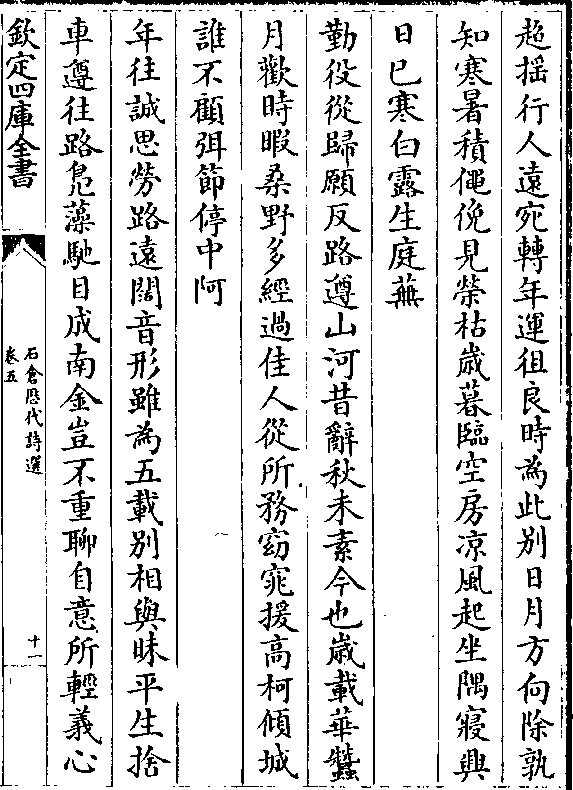 超揺行人遠宛轉年運徂良時為此別日月方向除孰
知寒暑積僶俛見榮枯歳暮臨空房凉風起坐隅寢興
日已寒白露生庭蕪
勤役從歸願反路遵山河昔辭秋未素今也歳載華蠶
月歡時暇桑野多經過佳人從所務窈窕援高柯傾城
誰不顧弭節停中阿
年往誠思勞路遠闊音形雖為五載別相與昧平生捨
車遵往路鳬藻馳目成南金豈不重聊自意所輕義心
欽定四庫全書
石倉歴代詩選
卷五
十一